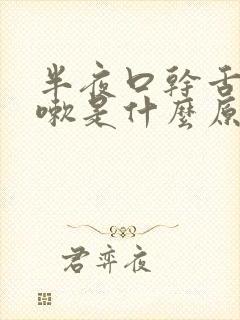 半夜口幹舌
嗽是什麼原
君弈夜